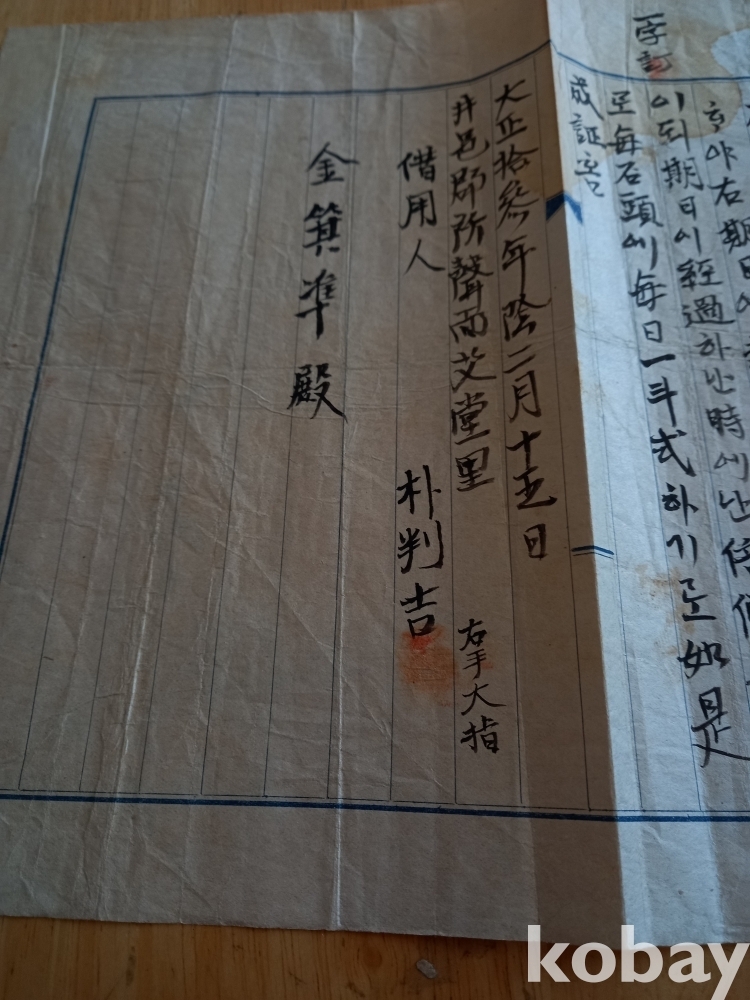 一字訂
하야右期日에
이되期日이經過하난時에난
로每石頭에每日一斗式하기로如是
成証홈
大正拾參年陰二月十五日
井邑郡所聲面艾堂里
右手大指
借用人 朴判吉
金箕准殿
kobay